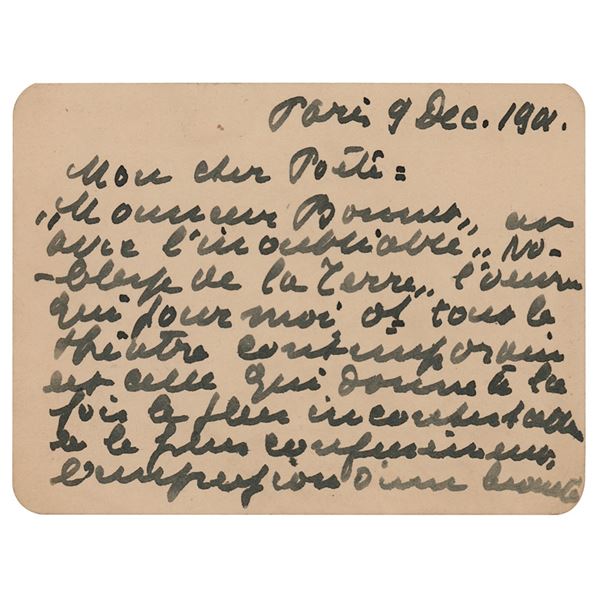 Paris 9 Dec. 1901.
Mon cher Poète =
„Monsieur Bonnet„ est
avec l'inoubliable „No-
-blesse de la Terre„ l'oeuvre
qui pour moi de tous le
théâtre contemporain
est celle qui donne à la
fois le plus
& le plus
l'impression d'une beauté